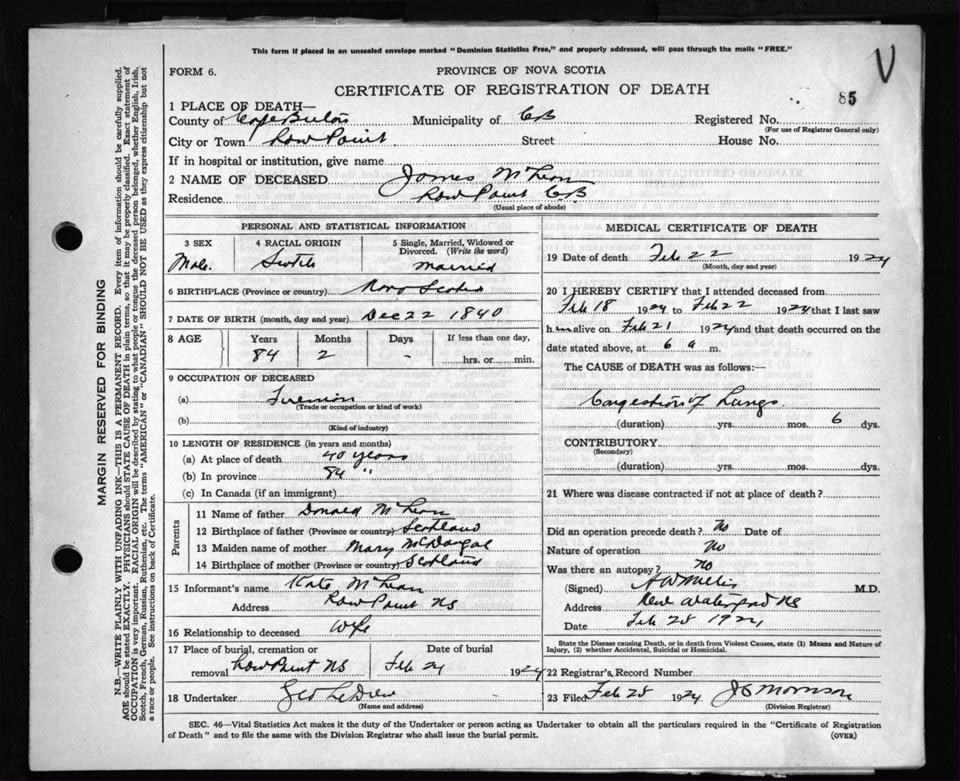 This form if placed in an unsealed envelope marked "Dominion Statistics Free," and properly addressed, will pass through the mails "FREE."
V
FORM 6.
PROVINCE OF NOVA SCOTIA
CERTIFICATE OF REGISTRATION OF DEATH
85
1 PLACE OF DEATH—
County of Cape Breton Municipality of CB Registered No.
(For use of Registrar General only)
City or Town Low Point Street House No.
If in hospital or institution, give name
2 NAME OF DECEASED James McLean
Residence Low Point CB
(Usual place of abode)
PERSONAL AND STATISTICAL INFORMATION
3 SEX 4 RACIAL ORIGIN 5 Single, Married, Widowed or
Divorced. (Write the word)
Male. Scotch Married
6 BIRTHPLACE (Province or country) Nova Scotia
7 DATE OF BIRTH (month, day and year) Dec 22 1840
8 AGE Years Months Days If less than one day,
84 2 - hrs. or min.
9 OCCUPATION OF DECEASED
(a) Fireman
(Trade or occupation or kind of work)
(b)
(Kind of industry)
10 LENGTH OF RESIDENCE (in years and months)
(a) At place of death 40 years
(b) In province 84 "
(c) In Canada (if an immigrant)
Parents
11 Name of father Donald McLean
12 Birthplace of father (Province or country) Scotland
13 Maiden name of mother Mary McDougal
14 Birthplace of mother (Province or country) Scotland
15 Informant's name Kate McLean
Address Low Point NS
16 Relationship to deceased Wife
17 Place of burial, cremation or Date of burial
removal Low Point NS Feb 24 1924
18 Undertaker Geo LeDrew
(Name and address)
MEDICAL CERTIFICATE OF DEATH
19 Date of death Feb 22 1924
(Month, day and year)
20 I HEREBY CERTIFY that I attended deceased from
Feb 18 1924 to Feb 22 1924 that I last saw
him alive on Feb 21 1924 and that death occurred on the
date stated above, at 6 a m.
The CAUSE of DEATH was as follows:—
Congestion of Lungs
(duration) yrs. mos. 6 dys.
CONTRIBUTORY
(Secondary)
(duration) yrs. mos. dys.
21 Where was disease contracted if not at place of death?
Did an operation precede death? No Date of
Nature of operation No
Was there an autopsy? No
(Signed) M.D.
Address New Waterford NS
Date Feb 25 1924
State the Disease causing Death, or in death from Violent Causes, state (1) Means and Nature of
Injury, (2) whether Accidental, Suicidal or Homicidal.
22 Registrar's Record Number
23 Filed Feb 25 1924 Morrison
(Division Registrar)
SEC. 46—Vital Statistics Act makes it the duty of the Undertaker or person acting as Undertaker to obtain all the particulars required in the "Certificate of Registration
of Death" and to file the same with the Division Registrar who shall issue the burial permit.
(OVER)
MARGIN RESERVED FOR BINDING
N.B.—WRITE PLAINLY WITH UNFADING INK—THIS IS A PERMANENT RECORD. Every item of information should be carefully supplied.
AGE should be stated EXACTLY. PHYSICIANS should STATE CAUSE OF DEATH in plain terms, so that it may be properly classified. Exact statement of
OCCUPATION is very important. RACIAL ORIGIN will be described by stating to what people or tongue the deceased person belonged, whether English, Irish,
Scotch, French, German, Russian, Ruthenian, etc. The terms "AMERICAN" or "CANADIAN" SHOULD NOT BE USED as they express citizenship but not
a race or people. See instructions on back of Certificate.